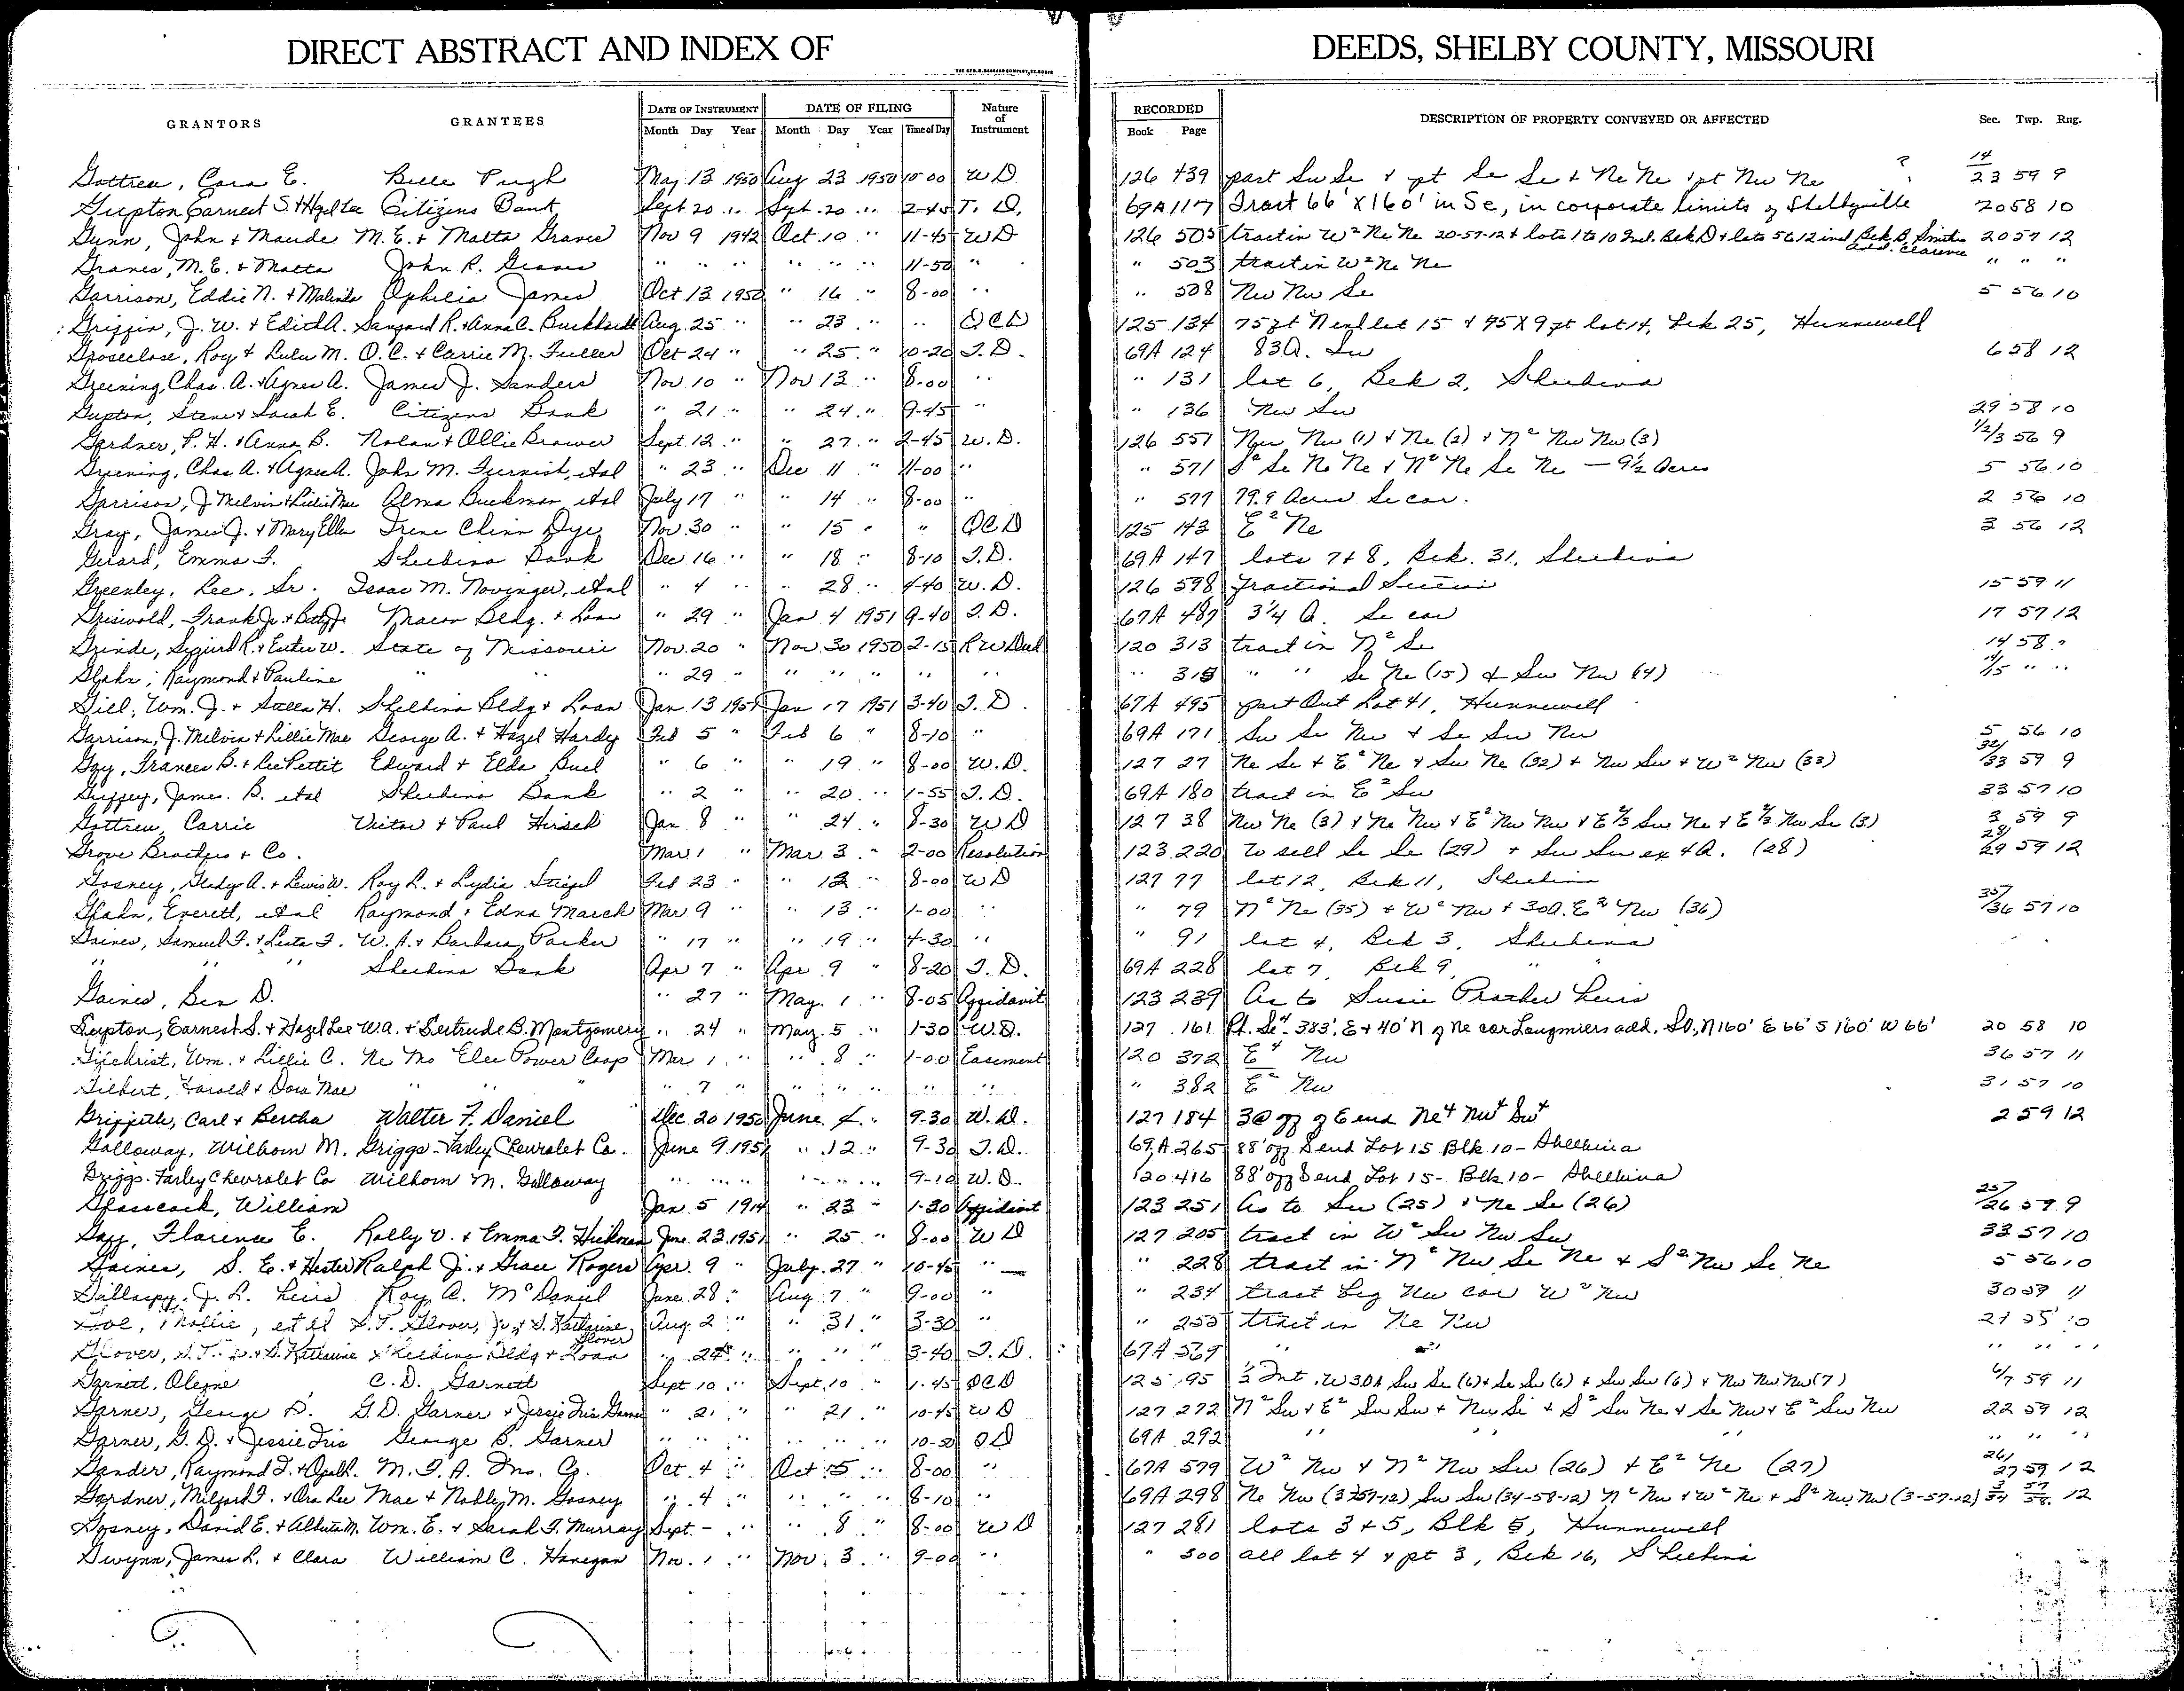 DIRECT ABSTRACT AND INDEX OF DEEDS, SHELBY COUNTY, MISSOURI
GRANTORS GRANTEES DATE OF INSTRUMENT Month Day Year DATE OF FILING Month Day Year Time of Day Nature of Instrument RECORDED Book Page DESCRIPTION OF PROPERTY CONVEYED OR AFFECTED Sec. Twp. Rng.
Gottren, Cora E. Belle Pugh May 13 1950 Aug 23 1950 10-00 WD 126 439 part Sw Se & pt Se Se & Ne Ne & pt Nw Ne ? 14/23 59 9
Gupton Earnest S. & Hazel Lee Citizens Bank Sept 20 " Sept. 20 " 2-45 T. D. 69A 117 Tract 66' X 160' in Se, in corporate limits of Shelbyville 20 58 10
Gunn, John & Maude M. E. & Matta Graves Nov 9 1942 Oct. 10 " 11-45 WD 126 505 tract in W² Ne Ne 20-57-12 & lots 1 to 10 Incl. Blk D & lots 5 6 12 incl Blk B, Smiths add. Clarence 20 57 12
Graves, M. E. & Matta John R. Graves " " " " " " 11-50 " " 503 tract in W² Ne Ne " " "
Garrison, Eddie N. & Malinda Ophelia James Oct 13 1950 " 16 " 8-00 " " 508 Nw Nw Se 5 56 10
Griffin, J. W. & Edith A. Sanford R. & Anna C. Burkhardt Aug. 25 " " 23 " " QCD 125 134 75 ft N end lot 15 & 75 X 9 ft lot 14, Blk 25, Hunnewell
Groseclose, Roy & Lulu M. O. C. & Carrie M. Fuller Oct 24 " " 25 " 10-20 T. D. 69A 124 83 A. Sw 6 58 12
Greening, Chas. A. & Agnes A. James J. Sanders Nov. 10 " Nov 13 " 8-00 " " 131 lot 6, Blk 2, Shelbina
Gupton, Steve & Sarah E. Citizens Bank " 21 " " 24 " 9-45 " " 136 Nw Sw 29 58 10
Gardner, P. H. & Anna B. Nolan & Ollie Brower Sept. 12 " " 27 " 2-45 W. D. 126 551 Nw Nw (1) & Ne (2) & N² Nw Nw (3) 1/2/3 56 9
Greening, Chas A. & Agnes A. John M. Furnish, etal " 23 " Dec 11 " 11-00 " " 571 S² Se Ne Ne & N² Ne Se Ne — 9½ Acres 5 56 10
Garrison, J. Melvin & Lillie Mae Alma Buckman, etal July 17 " " 14 " 8-00 " " 577 79.9 Acres Se cor. 2 56 10
Gray, James J. & Mary Ellen Irene Chinn Dye Nov. 30 " " 15 " " QCD 125 143 E² Ne 3 56 12
Gerard, Emma F. Shelbina Bank Dec 16 " " 18 " 8-10 T. D. 69A 147 lots 7 & 8, Blk. 31, Shelbina
Greenley, Lee, Sr. Isaac M. Novinger, etal " 4 " " 28 " 4-40 W. D. 126 598 Fractional Section 15 59 11
Griswold, Frank Jr. & Betty Jo Macon Bldg. & Loan " 29 " Jan 4 1951 9-40 T. D. 67A 487 3¼ A. Se cor 17 57 12
Grinde, Sigurd R. & Ester W. State of Missouri Nov. 20 " Nov 30 1950 2-15 R W Deed 120 313 tract in N² Se 14 58 "
Glahn, Raymond & Pauline " " " 29 " " " " " " " " " Se Ne (15) & Sw Nw (14) 14/15 " "
Gill, Wm. J. & Stella H. Shelbina Bldg & Loan Jan 13 1951 Jan 17 1951 3-40 T. D. 67A 495 part Out Lot 41, Hunnewell
Garrison, J. Melvin & Lillie Mae George A. & Hazel Hardy Feb 5 " Feb 6 " 8-10 " 69A 171 Sw Se Nw & Se Sw Nw 5 56 10
Gay, Frances B. & Lee Pettit Edward & Elda Buel " 6 " " 19 " 8-00 W. D. 127 27 Ne Se & E² Ne & Sw Ne (32) & Nw Sw & W² Nw (33) 32/33 59 9
Guffey, James. B. etal Shelbina Bank " 2 " " 20 " 1-55 T. D. 69A 180 tract in E² Sw 33 57 10
Gottren, Carrie Victor & Paul Hirsch Jan. 8 " " 24 " 8-30 WD 127 38 Nw Ne (3) & Ne Nw & E² Nw Nw & E⅔ Sw Ne & E⅔ Nw Se (3) 3 59 9
Grove Brothers & Co. Mar 1 " Mar. 3 " 2-00 Resolution 123 220 to sell Se Se (29) & Sw Sw ex 4 A. (28) 28/29 59 12
Gosney, Gladys A. & Lewis W. Roy L. & Lydia Stiegel Feb 23 " " 12 " 8-00 WD 127 77 lot 12, Blk 11, Shelbina
Glahn, Everett, etal Raymond & Edna March Mar. 9 " " 13 " 1-00 " " 79 N² Ne (35) & W² Nw & 30 A. E² Nw (36) 35/36 57 10
Gaines, Samuel F. & Leeta F. W. A. & Barbara Parker " 17 " " 19 " 4-30 " " 91 lot 4, Blk 3, Shelbina
" " " Shelbina Bank Apr 7 " Apr. 9 " 8-20 T. D. 69A 228 lot 7, Blk 9, " "
Gaines, Ben D. " 27 " May. 1 " 8-05 Affidavit 123 239 As to Susie Prather heirs
Gupton, Earnest S. & Hazel Lee W.A. & Gertrude B. Montgomery " 24 " May. 5 " 1-30 W.D. 127 161 Pt. Se⁴ 383', E & 40' N of Ne cor Longmiers add. Sd., N 160' E 66' S 160' W 66' 20 58 10
Gilchrist, Wm. & Lillie C. Ne Mo Elec Power Coop Mar. 1 " " 8 " 1-00 Easement 120 372 E⁴ Nw 36 57 11
Gilbert, Harold & Dora Mae " " " " 7 " " " " " " " 382 E² Nw 31 57 10
Griffith, Carl & Bertha Walter F. Daniel Dec. 20 1950 June 4 " 9-30 W. D. 127 184 3@ off of E end Ne⁴ Nw⁴ Sw⁴ 2 59 12
Galloway, Wilhorn M. Griggs-Farley Chevrolet Co. June 9 1951 " 12 " 9-30 T. D. 69A 265 88' off S end Lot 15 Blk 10 - Shelbina
Griggs-Farley Chevrolet Co Wilhorn M. Galloway " " " " " " 9-10 W. D. 120 416 88' off S end Lot 15 - Blk 10 - Shelbina
Glasscock, William Jan. 5 1914 " 23 " 1-30 Affidavit 123 251 As to Sw (25) & Ne Se (26) 25/26 59 9
Florence E. Rolly V. & Emma F. Hickman June 23 1951 " 25 " 8-00 WD 127 205 tract in W² Sw Nw Sw 33 57 10
Gaines, S. E. & Hester Ralph J. & Grace Rogers Apr. 9 " July 27 " 10-45 " " 228 tract in N² Nw Se Ne & S² Nw Se Ne 5 56 10
Gillaspy, J. L. heirs Roy A. McDaniel June 28 " Aug. 7 " 9-00 " " 234 tract beg Nw cor W² Nw 30 59 11
Mollie, et al S. T. Glover, Jr. & S. Katharine Glover Aug. 2 " " 31 " 3-30 " " 255 tract in Ne Nw
Glover, S. T. Jr. & S. Katharine Shelbina Bldg & Loan " 24 " " " " 3-40 T. D. 67A 569 " " " " "
Garnett, Olezne C. D. Garnett Sept 10 " Sept. 10 " 1-45 QCD 125 195 ½ Int. W 30A Sw Se (6) & Se Sw (6) & Sw Sw (6) & Nw Nw Nw (7) 6/7 59 11
Garner, George B. G.D. Garner & Jessie Iris Garner " 21 " " 21 " 10-45 WD 127 272 N² Sw & E² Sw Sw & Nw Se & S² Sw Ne & Se Nw & E² Sw Nw 22 59 12
Garner, G. D. & Jessie Iris George B. Garner " " " " " " 10-50 TD 69A 292 " " " " " "
Gander, Raymond T. & Opal R. M. F. A. Ins. Co. Oct 4 " Oct 5 " 8-00 " 67A 579 W² Nw & N² Nw Sw (26) & E² Ne (27) 26/27 59 12
Gardner, Milford F. & Ora Lee Mae & Noble M. Gosney " 4 " " " " 8-10 " 69A 298 Ne Nw (3-57-12) Sw Sw (34-58-12) N² Nw & W² Ne & S² Nw Nw (3-57-12) 3/34 57/58 12
Gosney, David E. & Alberta M. Wm. E. & Sarah F. Murray Sept - " " 8 " 8-00 WD 127 281 lots 3 & 5, Blk 5, Hunnewell
Gwynn, James L. & Clara William C. Hanegan Nov. 1 " Nov. 3 " 9-00 " " 300 all lot 4 & pt 3, Blk 16, Shelbina